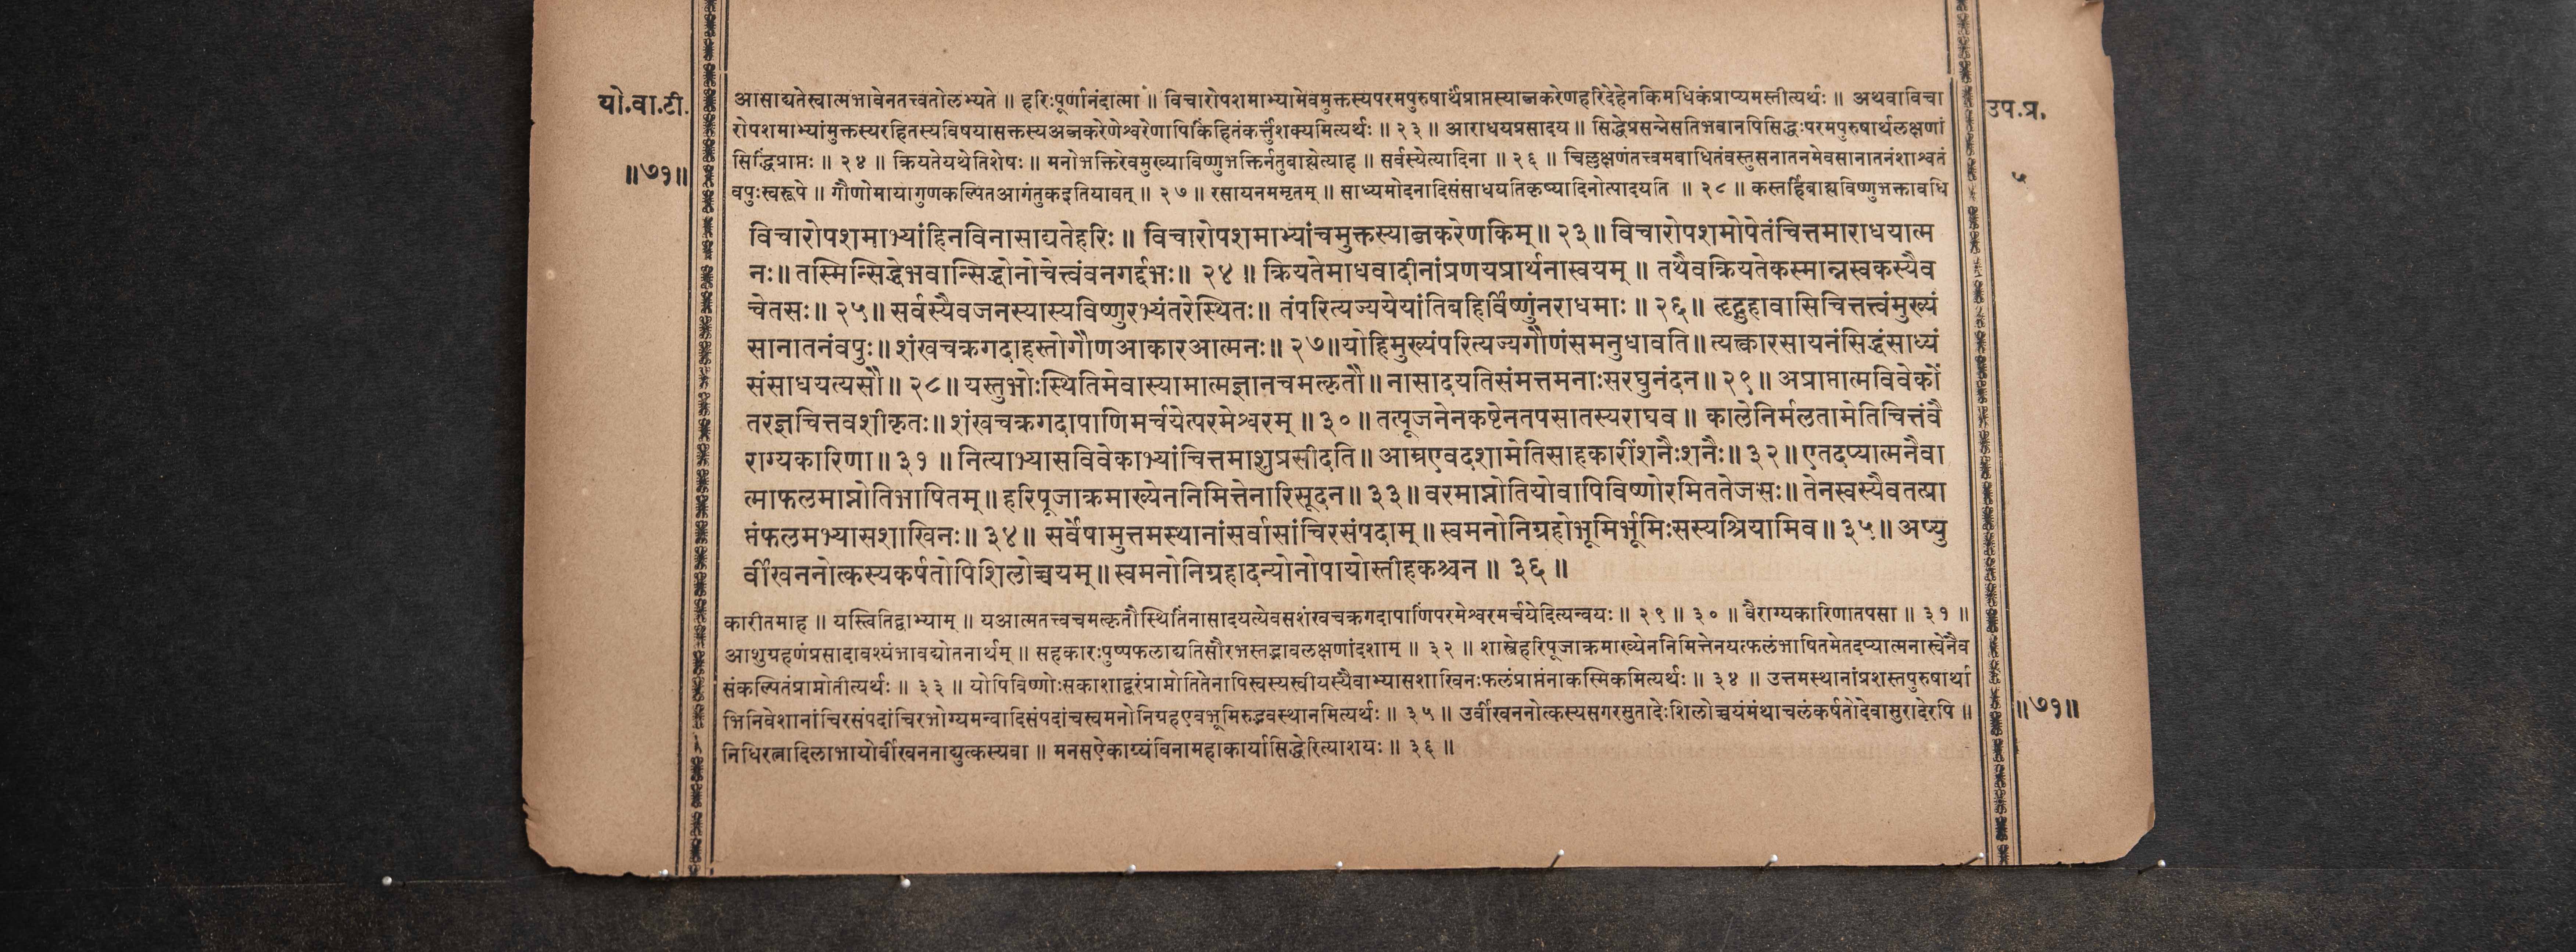 यो.वा.टी.
॥७१॥
आसाद्यतेस्वात्मभावेनतत्त्वतोलभ्यते ॥ हरिःपूर्णानंदात्मा ॥ विचारोपशमाभ्यामेवमुक्तस्यपरमपुरुषार्थप्राप्तस्याब्जकरेणहरिदेहेनकिमधिकंप्राप्यमस्तीत्यर्थः ॥ अथवाविचा
रोपशमाभ्यांमुक्तस्यरहितस्यविषयासक्तस्यअब्जकरेणेश्वरेणापिकिंहितंकर्त्तुंशक्यमित्यर्थः ॥ २३ ॥ आराधयप्रसादय ॥ सिद्धेप्रसन्नेसतिभवानपिसिद्धःपरमपुरुषार्थलक्षणां
सिद्धिंप्राप्तः ॥ २४ ॥ क्रियतेयथेतिशेषः ॥ मनोभक्तिरेवमुख्याविष्णुभक्तिर्नतुबाह्येत्याह ॥ सर्वस्येत्यादिना ॥ २६ ॥ चिल्लक्षणंतत्त्वमबाधितंवस्तुसनातनमेवसानातनंशाश्वतं
वपुःस्वरूपे ॥ गौणोमायागुणकल्पितआगंतुकइतियावत् ॥ २७ ॥ रसायनममृतम् ॥ साध्यमोदनादिसंसाधयतिकृष्यादिनोत्पादयति ॥ २८ ॥ कस्तर्हिबाह्यविष्णुभक्तावधि
विचारोपशमाभ्यांहिनविनासाद्यतेहरिः ॥ विचारोपशमाभ्यांचमुक्तस्याब्जकरेणकिम् ॥ २३ ॥ विचारोपशमोपेतंचित्तमाराधयात्म
नः ॥ तस्मिन्सिद्धेभवान्सिद्धोनोचेत्त्वंवनगर्द्दभः ॥ २४ ॥ क्रियतेमाधवादीनांप्रणयप्रार्थनास्वयम् ॥ तथैवक्रियतेकस्मान्नस्वकस्यैव
चेतसः ॥ २५ ॥ सर्वस्यैवजनस्यास्यविष्णुरभ्यंतरेस्थितः ॥ तंपरित्यज्ययेयांतिबहिर्विष्णुंनराधमाः ॥ २६ ॥ हृद्गुहावासिचित्तत्त्वंमुख्यं
सानातनंवपुः ॥ शंखचक्रगदाहस्तोगौणआकारआत्मनः ॥ २७ ॥ योहिमुख्यंपरित्यज्यगौणंसमनुधावति ॥ त्यक्त्वारसायनंसिद्धंसाध्यं
संसाधयत्यसौ ॥ २८ ॥ यस्तुभोःस्थितिमेवास्यामात्मज्ञानचमत्कृतौ ॥ नासादयतिसंमत्तमनाःसरघुनंदन ॥ २९ ॥ अप्राप्तात्मविवेकों
तरज्ञचित्तवशीकृतः ॥ शंखचक्रगदापाणिमर्चयेत्परमेश्वरम् ॥ ३० ॥ तत्पूजनेनकष्टेनतपसातस्यराघव ॥ कालेनिर्मलतामेतिचित्तंवै
राग्यकारिणा ॥ ३१ ॥ नित्याभ्यासविवेकाभ्यांचित्तमाशुप्रसीदति ॥ आम्रएवदशामेतिसाहकारींशनैःशनैः ॥ ३२ ॥ एतदप्यात्मनैवा
त्माफलमाप्नोतिभाषितम् ॥ हरिपूजाक्रमाख्येननिमित्तेनारिसूदन ॥ ३३ ॥ वरमाप्नोतियोवापिविष्णोरमिततेजसः ॥ तेनस्वस्यैवतत्प्रा
प्तंफलमभ्यासशाखिनः ॥ ३४ ॥ सर्वेषामुत्तमस्थानांसर्वासांचिरसंपदाम् ॥ स्वमनोनिग्रहोभूमिर्भूमिःसस्यश्रियामिव ॥ ३५ ॥ अप्यु
र्वींखननोत्कस्यकर्षतोपिशिलोच्चयम् ॥ स्वमनोनिग्रहादन्योनोपायोस्तीहकश्चन ॥ ३६ ॥
कारीतमाह ॥ यस्त्वितिद्वाभ्याम् ॥ यआत्मतत्त्वचमत्कृतौस्थितिंनासादयत्येवसशंखचक्रगदापाणिंपरमेश्वरमर्चयेदित्यन्वयः ॥ २९ ॥ ३० ॥ वैराग्यकारिणातपसा ॥ ३१ ॥
आशुग्रहणंप्रसादावश्यंभावद्योतनार्थम् ॥ सहकारःपुष्पफलाद्यतिसौरभस्तद्भावलक्षणांदशाम् ॥ ३२ ॥ शास्त्रेहरिपूजाक्रमाख्येननिमित्तेनयत्फलंभाषितमेतदप्यात्मनास्वेनैव
संकल्पितंप्राप्नोतीत्यर्थः ॥ ३३ ॥ योपिविष्णोःसकाशाद्वरंप्राप्नोतितेनापिस्वस्यस्वीयस्यैवाभ्यासशाखिनःफलंप्राप्तंनाकस्मिकमित्यर्थः ॥ ३४ ॥ उत्तमस्थानांप्रशस्तपुरुषार्था
भिनिवेशानांचिरसंपदांचिरभोग्यमन्वादिसंपदांचस्वमनोनिग्रहएवभूमिरुद्भवस्थानमित्यर्थः ॥ ३५ ॥ उर्वींखननोत्कस्यसगरसुतादेःशिलोच्चयंमंथाचलंकर्षतोदेवासुरादेरपि ॥
निधिरत्नादिलाभायोर्वींखननाद्युत्कस्यवा ॥ मनसऐकाग्र्यंविनामहाकार्यासिद्धेरित्याशयः ॥ ३६ ॥
उप.प्र.
५
॥७१॥